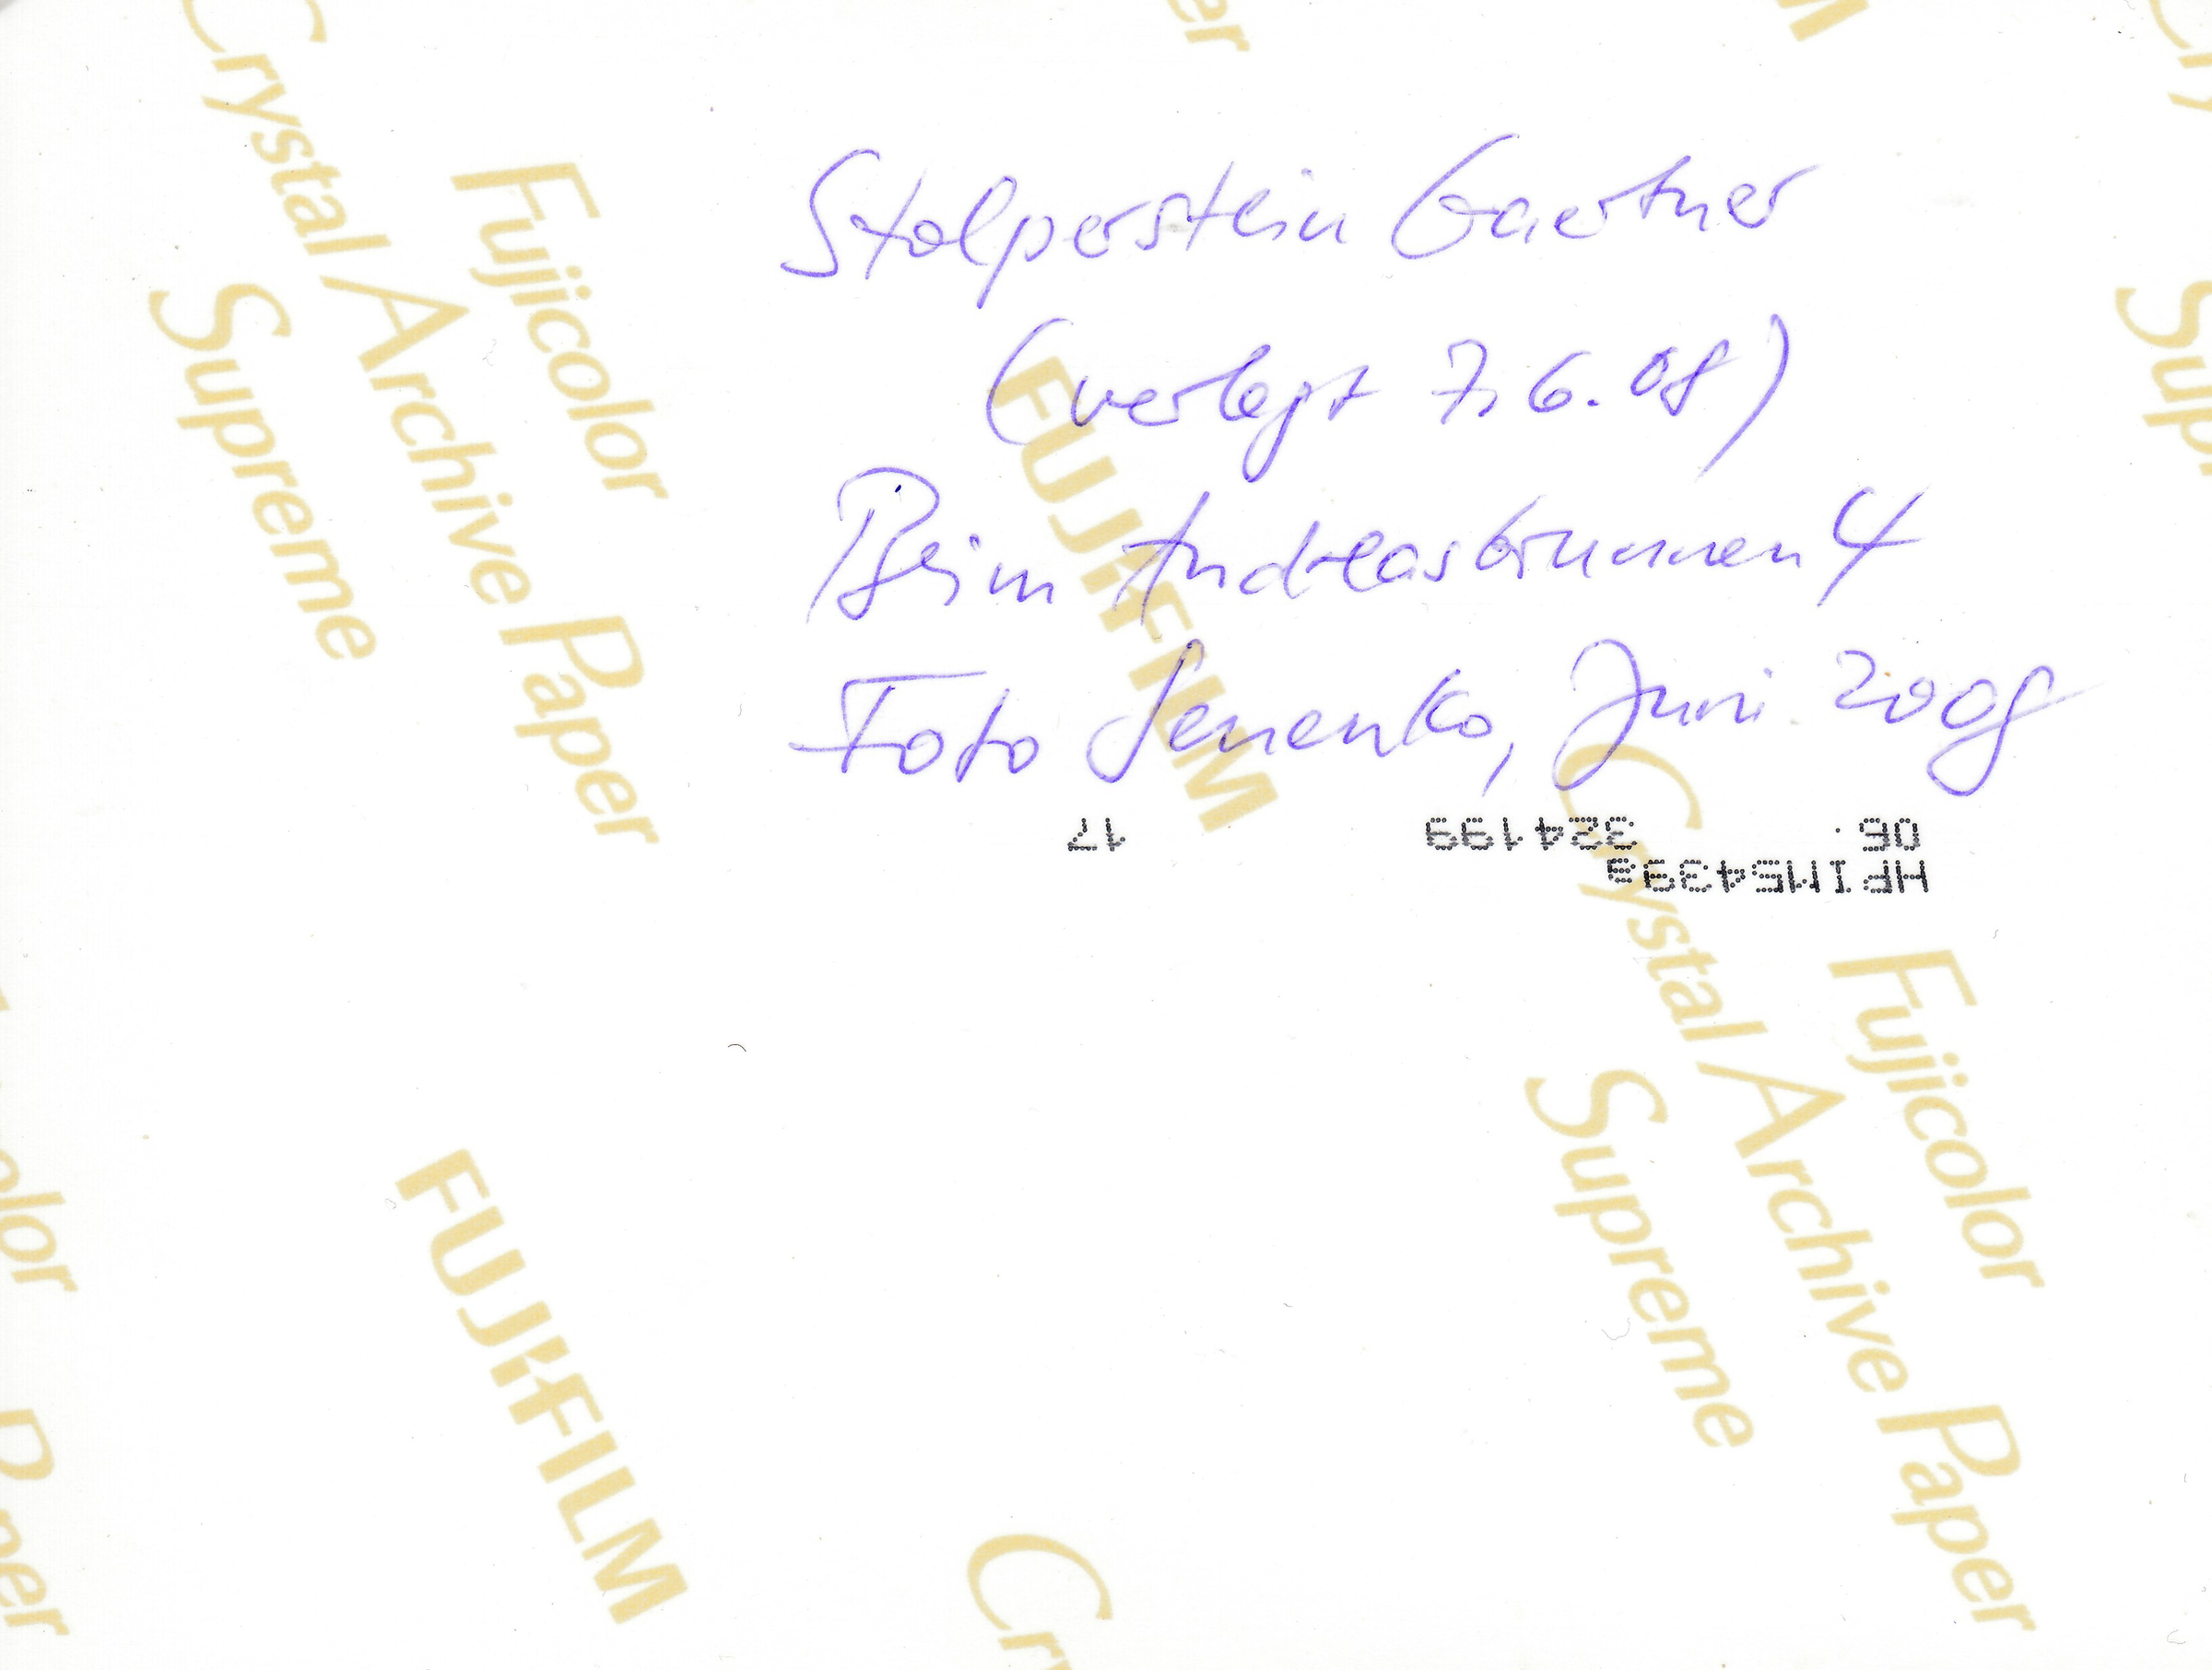 Stolperstein Gaertner
(verlegt 7.6.08)
Beim Andreasbrunnen 4
Foto Senenko, Juni 2008
17 324199 05.
HPIM5439a
Fujicolor
Crystal Archive Paper
Supreme
FUJIFILM
Fujicolor
Crystal Archive Paper
Supreme
FUJIFILM